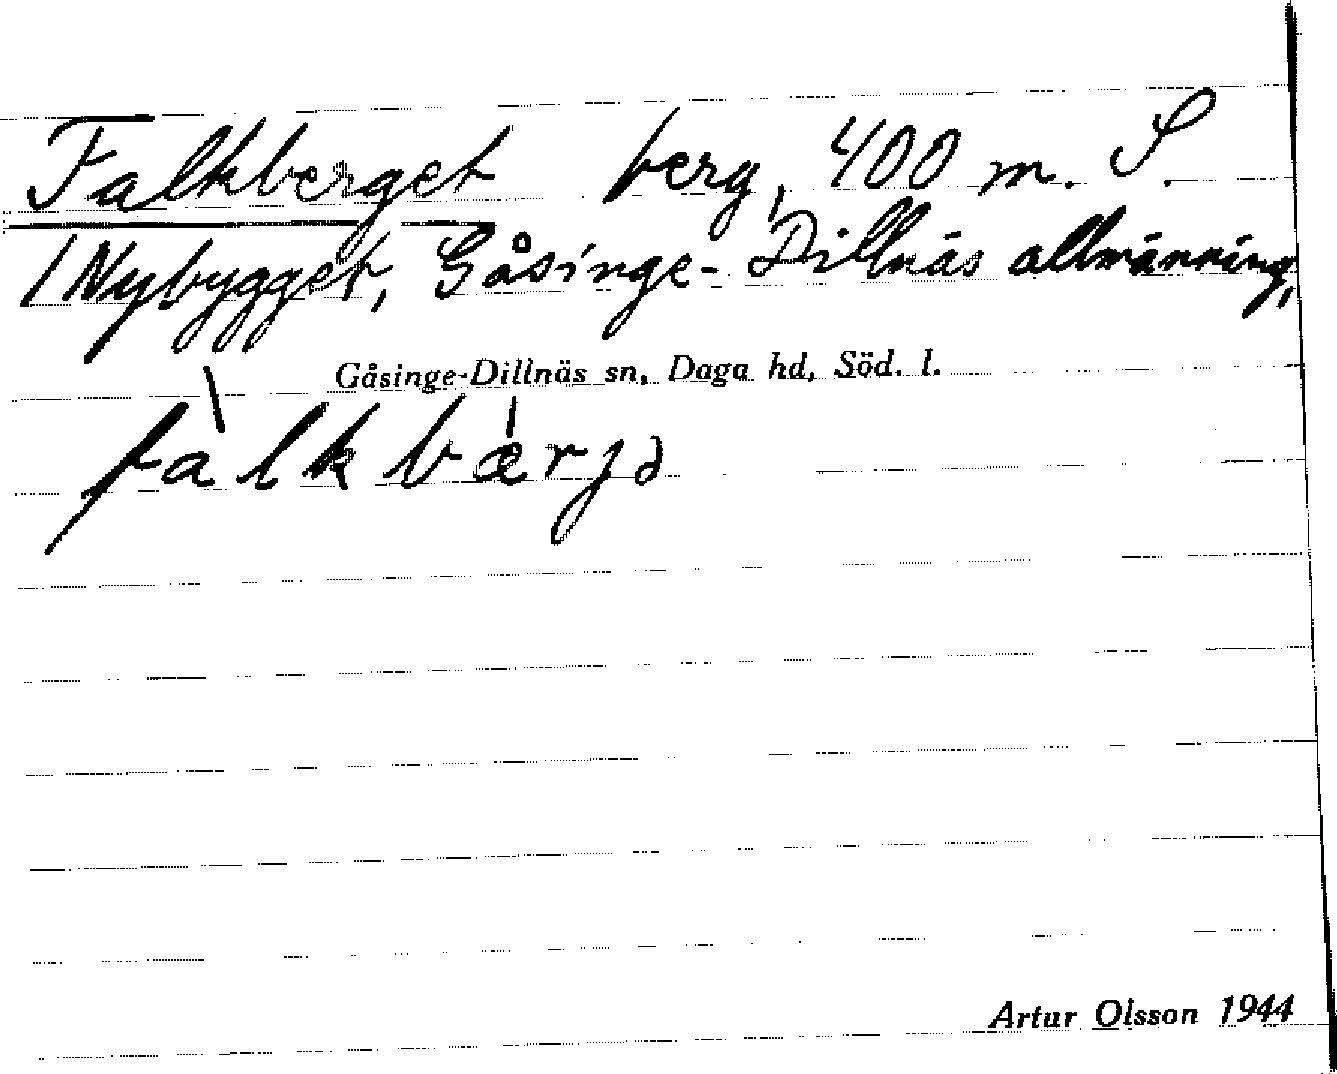 Falkberget berg, 400 m. S.
/Nybygget, Gåsinge-Dillnäs allmänning,
Gåsinge-Dillnäs sn, Daga hd, Söd. l.
fàlkbǽrjə
Artur Olsson 1944